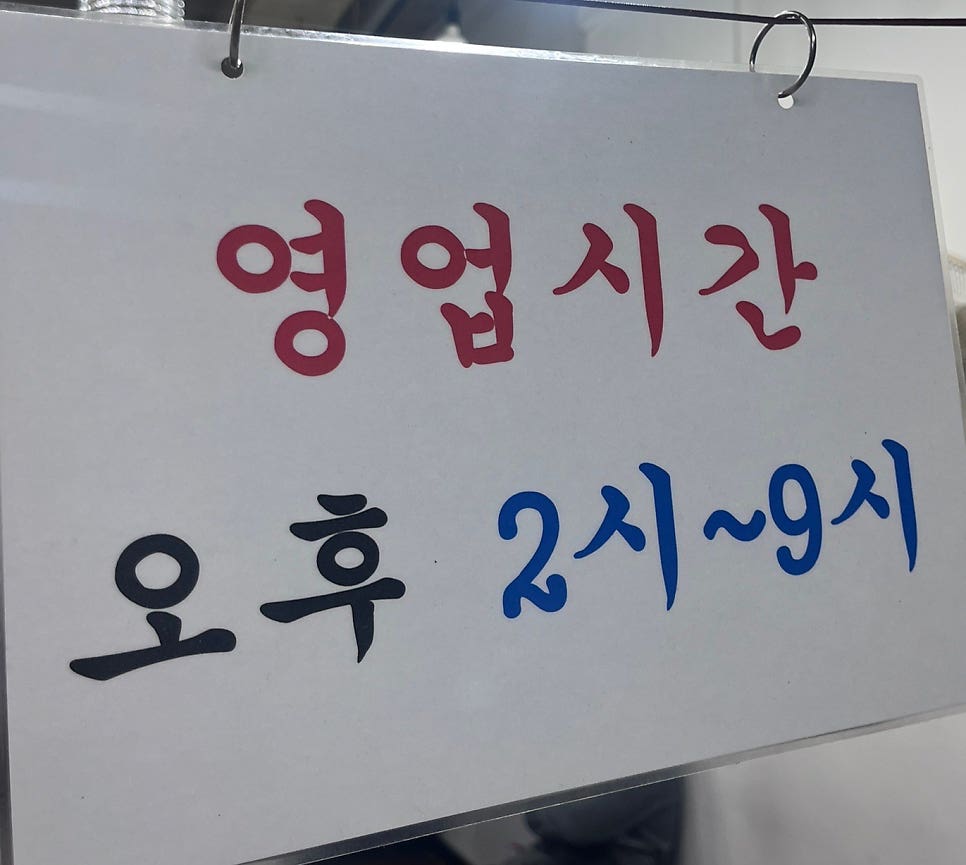 영업시간
오후 2시~9시